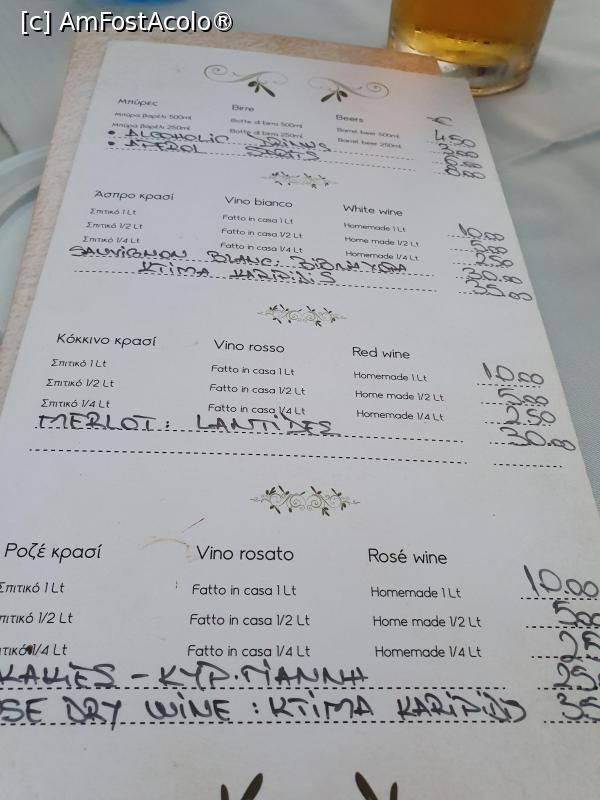 [c] AmFostAcolo®
Μπύρες Birre Beers €
Μπύρα βαρέλι 500ml Botte di birra 500ml Barrel beer 500ml 4.50
Μπύρα βαρέλι 250ml Botte di birra 250ml Barrel beer 250ml
• ALCOHOLIC DRINKS
• APEROL
Άσπρο κρασί Vino bianco White wine
Σπιτικό 1 Lt Fatto in casa 1 Lt Homemade 1 Lt 10.00
Σπιτικό 1/2 Lt Fatto in casa 1/2 Lt Home made 1/2 Lt 5.00
Σπιτικό 1/4 Lt Fatto in casa 1/4 Lt Homemade 1/4 Lt 2.50
SAUVIGNON BLANC: ΒΙΒΛΙΑ ΧΩΡΑ 30.00
KTIMA KARIPIDIS 35.00
Κόκκινο κρασί Vino rosso Red wine
Σπιτικό 1 Lt Fatto in casa 1 Lt Homemade 1 Lt 10.00
Σπιτικό 1/2 Lt Fatto in casa 1/2 Lt Home made 1/2 Lt 5.00
Σπιτικό 1/4 Lt Fatto in casa 1/4 Lt Homemade 1/4 Lt 2.50
MERLOT: LANTIDES 30.00
Ροζέ κρασί Vino rosato Rosé wine
Σπιτικό 1 Lt Fatto in casa 1 Lt Homemade 1 Lt 10.00
πιτικό 1/2 Lt Fatto in casa 1/2 Lt Home made 1/2 Lt 5.00
ιτικό 1/4 Lt Fatto in casa 1/4 Lt Homemade 1/4 Lt 25
KAKIES - ΚΥΡ.ΓΙΑΝΝΗ 25
OSE DRY WINE : KTIMA KARIPIDIS 35